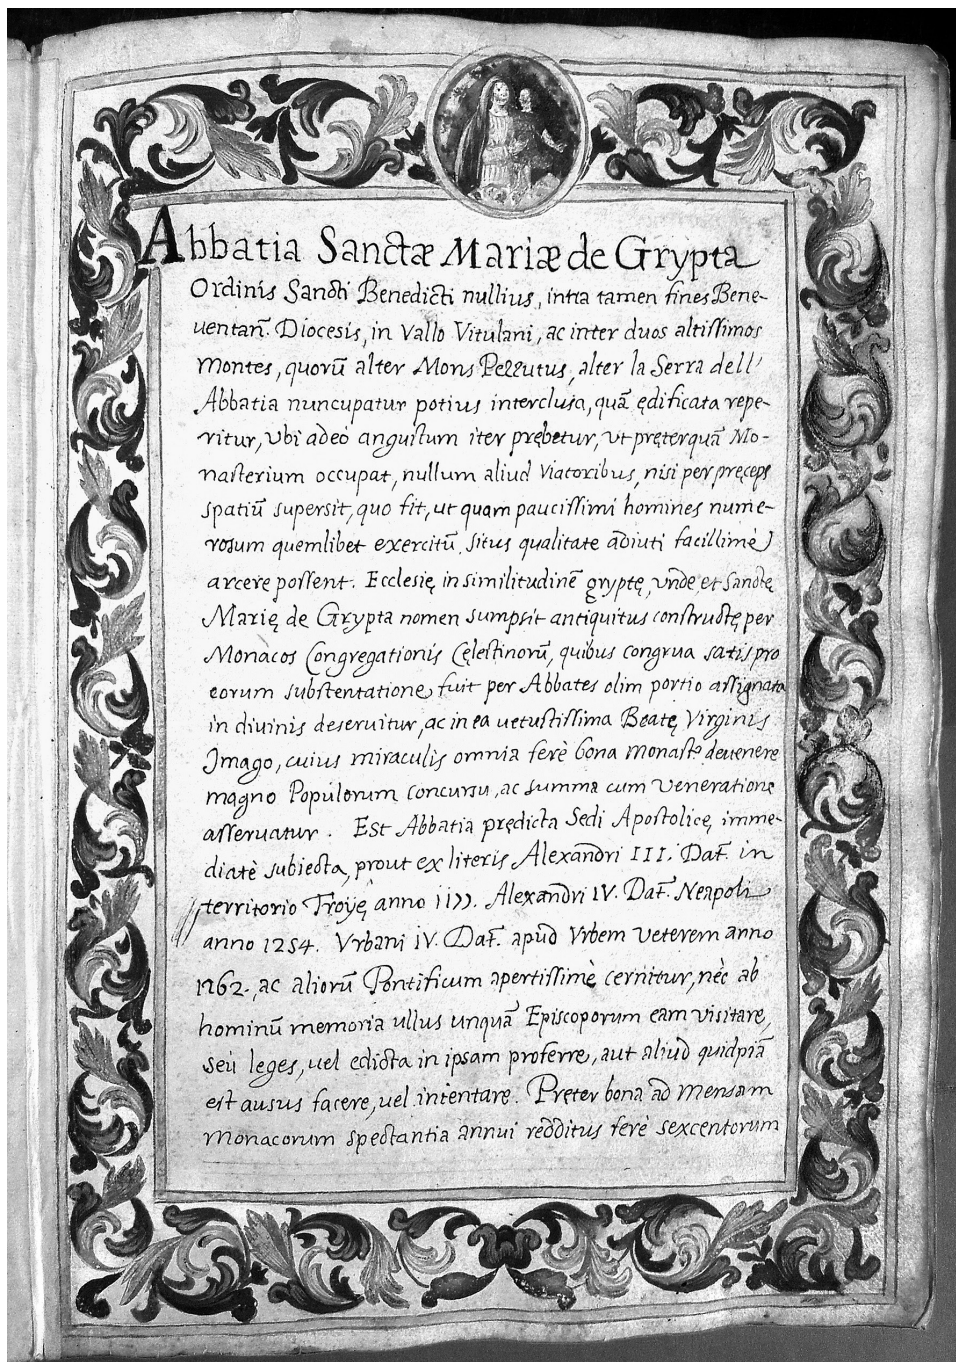 Abbatia Sanctæ Mariæ de Grypta
Ordinis Sancti Benedicti nullius, intra tamen fines Bene-
uentan̄. Diocesis, in Vallo Vitulani, ac inter duos altissimos
montes, quorū alter Mons Pellutus, alter la Serra dell'
Abbatia nuncupatur potius interclusa, quā ędificata repe-
ritur, Vbi adeò angustum iter prębetur, vt pręterquā Mo-
nasterium occupat, nullum aliud Viatoribus, nisi per pręceps
spatiū supersit, quo fit, ut quam paucissimi homines nume-
rosum quemlibet exercitū, situs qualitate adiuti facillimè
arcere possent. Ecclesię in similitudinē gryptę, vnde et Sanctę
Marię de Grypta nomen sumpsit antiquitus constructę per
Monacos Congregationis Cęlestinorū, quibus congrua satis pro
eorum substentatione fuit per Abbates olim portio assignata
in diuinis deseruitur, ac in ea uetustissima Beatę Virginis
Imago, cuius miraculis omnia ferè bona monastr̄ deuenere
magno Populorum concursu, ac summa cum Veneratione
asseruatur. Est Abbatia prędicta Sedi Apostolicę imme-
diatè subiecta, prout ex literis Alexandri III. Dat̄. in
territorio Troyę anno 1177. Alexandri IV. Dat̄. Neapoli
anno 1254. Vrbani IV. Dat̄. apud Vrbem Veterem anno
1262., ac aliorū Pontificum apertissimè cernitur, nèc ab
hominū memoria ullus unquā Episcoporum eam visitare,
seù leges, uel edicta in ipsam proferre, aut aliud quidpiā
est ausus facere, uel intentare. Pręter bona ad Mensam
Monacorum spectantia annui redditus ferè sexcentorum